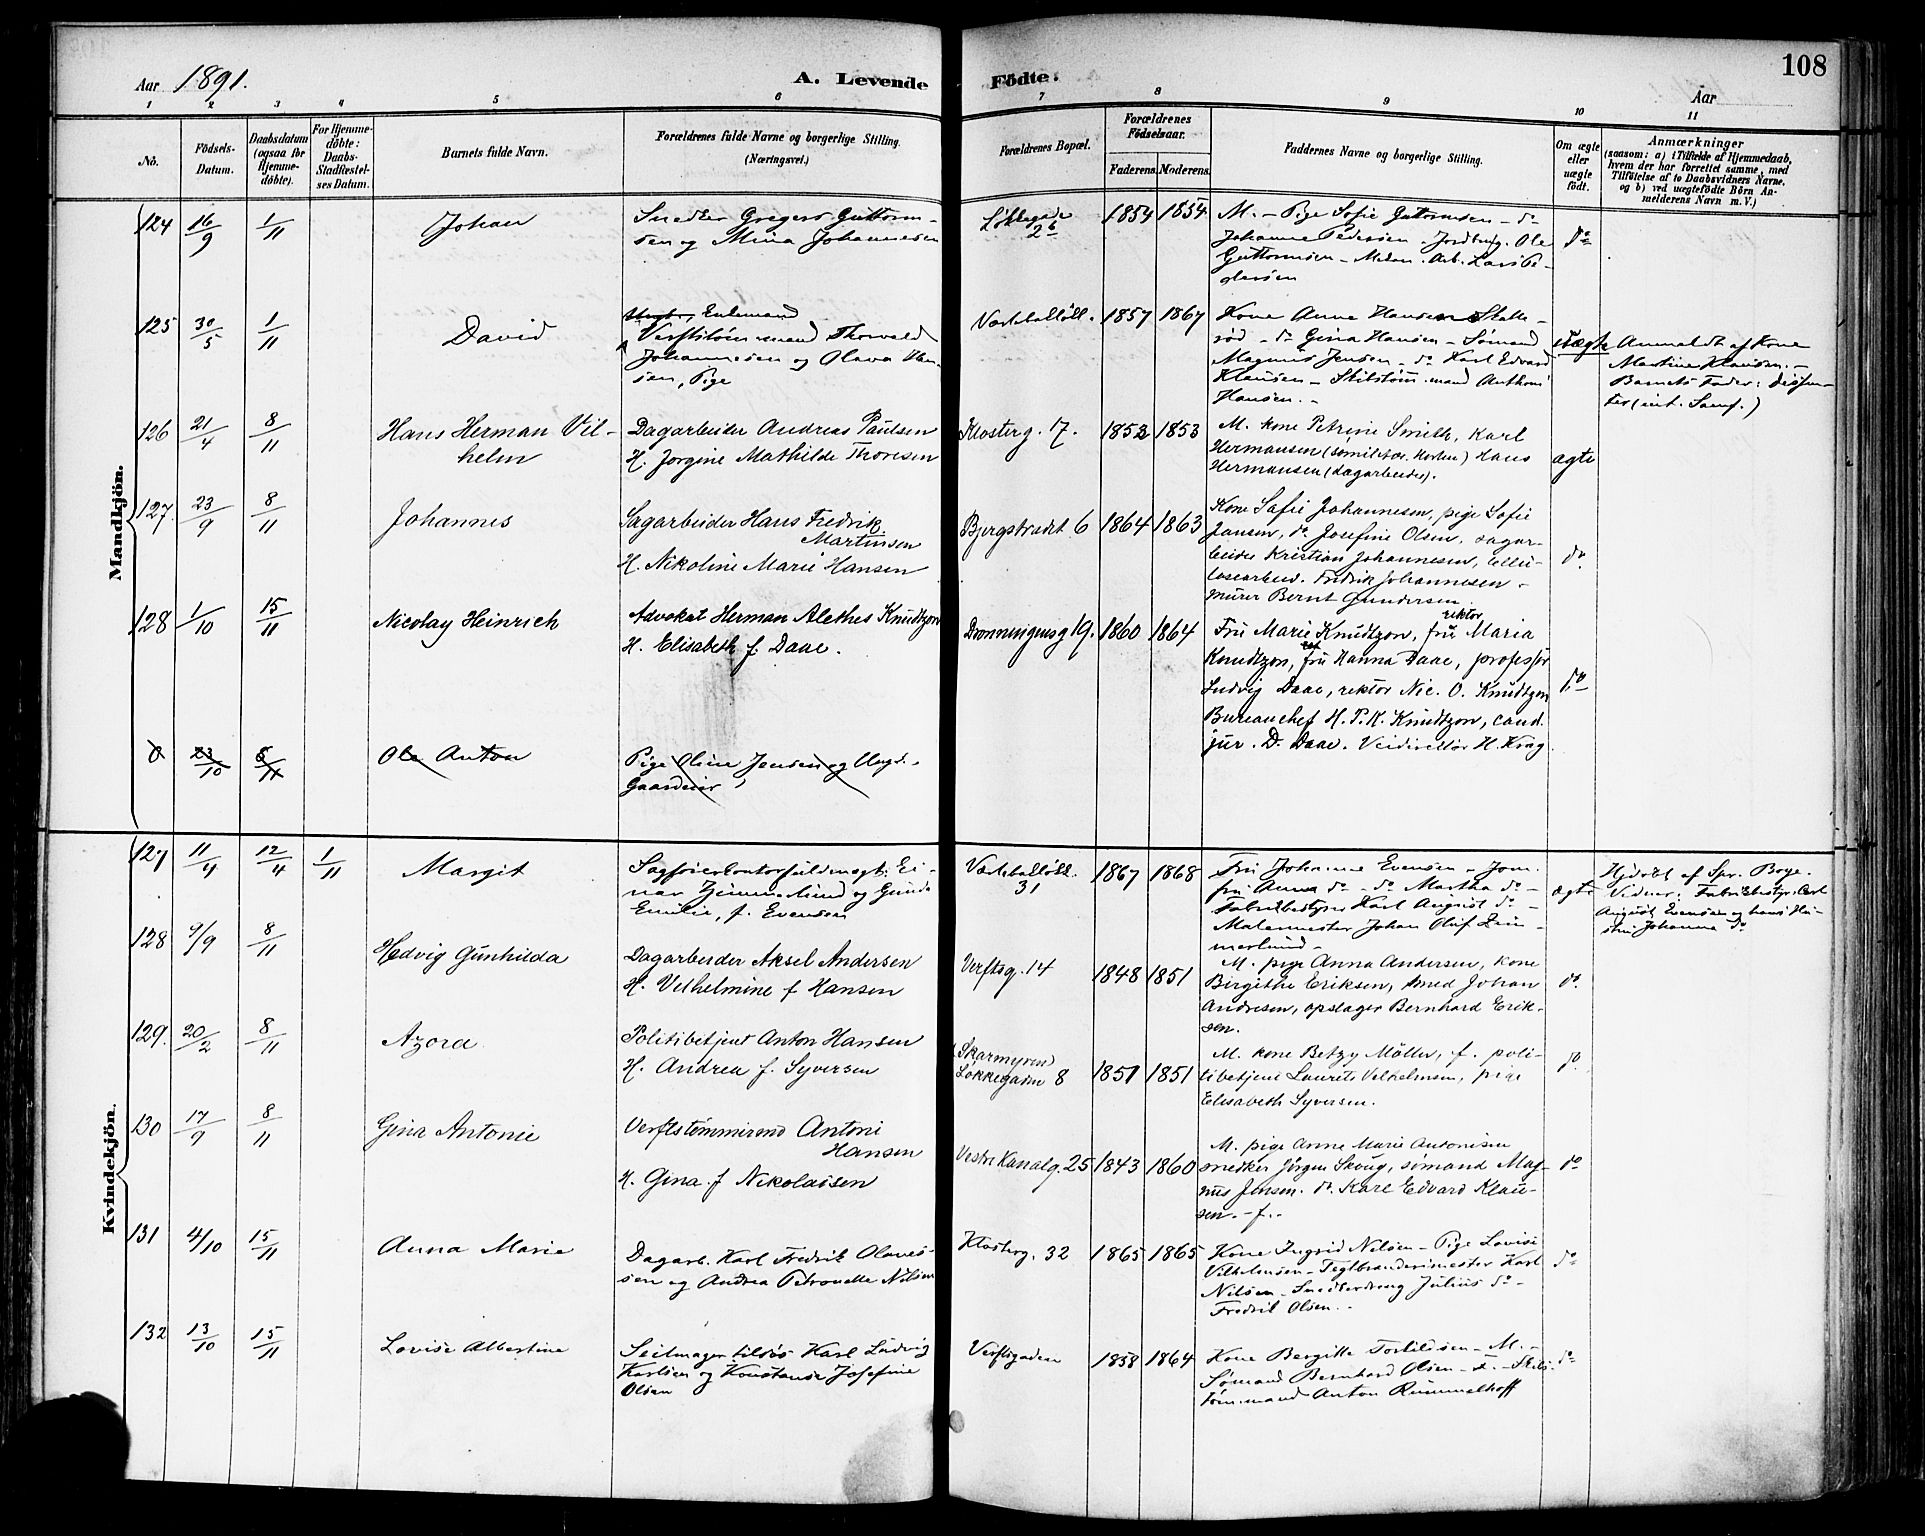 108
Aar 1891.
A. Levende
Födte.
Aar
1 2 3 4 5 6 7 8 9 10 11
No.
Födsels-
Datum.
Daabsdatum
(ogsaa for
Hjemme-
döbte).
For Hjemme-
döbte:
Daabs-
Stadfæstel-
ses Datum.
Barnets fulde Navn.
Forældrenes fulde Navne og borgerlige Stilling.
(Næringsvei.)
Forældrenes Bopæl.
Forældrenes
Födselsaar.
Faderens. Moderens.
Faddernes Navne og borgerlige Stilling.
Om ægte
eller
uægte
födt.
Anmærkninger
(saasom: a) i Tilfælde af Hjemmedaab,
hvem der har forrettet samme, med
Tilföielse af to Daabsvidners Navne.
og b) ved uægtefödte Börn An-
melderens Navn m. V.)
Mandkjön.
124 16/9 1/11 Johan
Snedker Gregers Guttorm-
sen og Mina Johannesen
Løkkegade
26
1854 1854
M. - Pige Sofie Guttormsen - do
Johanne Pedersen. Jordbrug. Ole
Guttormsen - Arb. Lars Pe-
dersen
do
125 30/5 1/11 David
Ungk., Enkemand
Verftstømmermand Thorvald
Johannesen og Olava Han-
sen, Pige
1857 1867
Kone Anne Hansen Skalle-
rød - do Gina Hansen - Sømand
Magnus Jensen - do Karl Edvard
Klausen - Skibstøm.mand Anthon
Hansen. -
Uægte
Anmeldt af Kone
Martine Klausen. -
Barnets Fader: dissen-
ter
126 21/4 8/11 Hans Herman Vil-
helm
Dagarbeider Andreas Paulsen
H. Jorgine Mathilde Thoresen
Klosterg. 17. 1852 1853
M. kone Petrine Smith, Karl
Hermansen Hans
Hermansen (dagarbeider).
ægte
127. 23/9 8/11 Johannes
Sagarbeider Hans Fredrik
Martinsen
H. Nikoline Marie Hansen
Bjergstrædet 6 1864 1863
Kone Sofie Johannesen, pige Sofie
Jansen, do Josefine Olsen, sagar-
beider Kristian Johannesen, cellu-
losearbeid. Fredrik Johannesen -
murer Bernt Gundersen
do
128 1/10 15/11 Nicolay Heinrich
Advokat Herman Alethes Knudtzon
H. Elisabeth f. Daae.
Dronningensg 19. 1860 1864
Fru Marie Knudtzon, fru rektor Maria
Knudtzon, fru Hanna Daae, professor
Ludvig Daae, rektor Nic. O. Knudtzon
Bureauchef H. P. K. Knudtzon, cand.
jur. D. Daae. Veidirektør H. Krag
do
0 23/10 6/11 Ole Anton
Pige Oline Jensen og Ungk.
Gaardeier
Kvindekjön.
127 11/4 12/4 1/11 Margit
Sagførerkontorfuldmægt. Ei-
nar Zimmerlund og Gunda
Emilie, f. Evensen
31
1867 1868
Fru Johanne Evensen - Jom-
fru Anna do - do Martha do -
Fabrikbestyrer Karl August do -
Malermester Johan Oluf Zim-
merlund -
ægte
Hjdøbt af Spr. Boye.
Vidner: Fabrikbestyr. Carl
August Evensen og hans Hu-
stru Johanna do
128 9/9 8/11 Hedvig Gunhilda
Dagarbeider Aksel Andersen
H. Vilhelmine f Hansen
Verftsg. 14 1848 1851
M. pige Anna Andersen, kone
Birgithe Eriksen, smed Johan
Andresen, opslager Bernhard Erik-
sen.
do.
129. 20/2 8/11 Azora
Politibetjent Anton Hansen
H. Andrea f. Syversen
Skarmyren
Løkkegaden 8
1851 1851
M. kone Betzy Möller, f. poli-
tibetjent Laurits Vilhelmsen, pige
Elisabeth Syversen.
do
130 17/9 8/11 Gina Antonie
Verftstømmermd Antoni
Hansen
H. Gina f Nikolaisen
Vestre Kanalg. 25 1843 1860
M. pige Anne Marie Antonisen
snedker Jörgen Skoug, sømand Mag-
nus Jensen. do. Karl Edvard Klau-
sen. - f. -
do
131 4/10 15/11 Anna Marie
Dagarb. Karl Fredrik Olaves-
sen og Andrea Petronelle Nilsen
Klosterg. 32 1865 1865
Kone Ingrid Nilsen - Pige Lovise
Vilhelmsen - Teglbrændermester Karl
Nilsen - Snedkerdreng Julius do -
Fredrik Olsen. -
do
132 13/10 15/11 Lovise Albertine
Seilmager Karl Ludvig
Karlsen og Konstanse Josefine
Olsen
Verftsgaden 1858 1864
Kone Bergitte Torkildsen - M. -
Sømand Bernhard Olsen - f. - Skibs-
tøm.mand Anton Rummelhoff
do